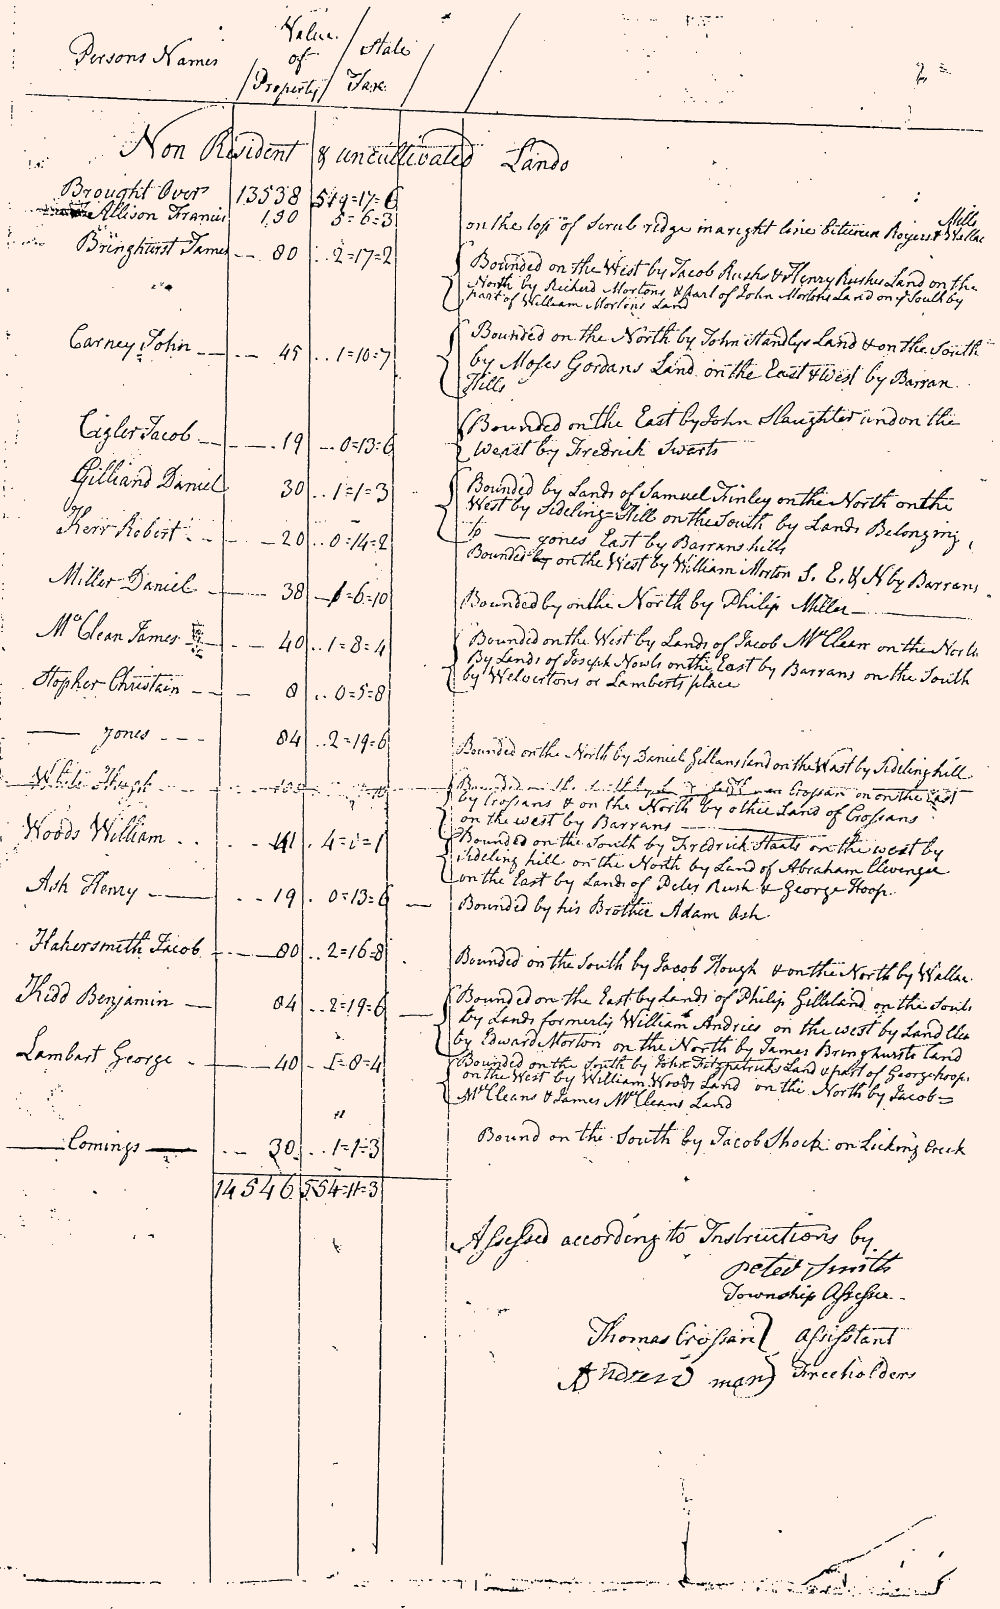 Persons Names / Value of Property / State Tax
Non Resident & uncultivated Lands
Brought Over 13538 519=17=6
Allison Francis 150 5=6=3 on the top of Scrub ridge in a right line between Rogers & Wallac Mills
Bringhurst James -- 80 .. 2=17=2 Bounded on the West by Jacob Rushs & Henry Rushes Land on the
North by Richard Mortons & part of John Mortons Land on ye South by
part of William Mortons Land
Carney John -- 45 .. 1=10=7 Bounded on the North by John Handlys Land & on the South
by Moses Gordans Land on the East & West by Barran
Hills
Ciglar Jacob -- 19 -- 0=13=6 Bounded on the East by John Slaughter and on the
weast by Fredrick Swarts
Gilliand Daniel 30 .. 1=1=3 Bounded by Lands of Samuel Finley on the North on the
West by Sideling=Hill on the South by Lands Belonging
to —— yones East by Barrans hills
Kerr Robert -- 20 .. 0=14=2 Bounded by on the West by William Morton S. E. & N by Barrans
Miller Daniel -- 38 1=6=10 Bounded by on the North by Philip Miller
McClean James -- 40 .. 1=8=4 Bounded on the West by Lands of Jacob McClean on the North
By Lands of Joseph Nowls on the East by Barrans on the South
by Welvertons or Lamberts place
Stopher Christain -- 8 .. 0=5=8
—— yones --- 84 .. 2=19=6 Bounded on the North by Daniel Gillans land on the West by Sideling hill
White Hugh Bounded Crossan on on the East
by Crossans & on the North by other Land of Crossans
on the west by Barrans
Woods William .. 4=1=1 Bounded on the South by Fredrick Staats on the west by
Sideling hill on the North by Land of Abraham Clevenger
on the East by Lands of Peter Rush & George Hoop
Ash Henry —— .. 19 . 0=13=6 Bounded by his Brother Adam Ash
Hahersmith Jacob -- 80 .. 2=16=8 Bounded on the South by Jacob Hough & on the North by Wallac
Kidd Benjamin — 84 .. 2=19=6 Bounded on the East by Lands of Philip Gilliland on the South
by Lands formerly William Andries on the west by Land
by Edward Morton on the North by James Bringhursts land
Lambart George - 40 . 1=8=4 Bounded on the South by John Fitzpatricks Land & part of George hoops
on the West by William Woods Land on the North by Jacob=
McCleans & James McCleans Land
—— Comings —— 30 .. 1=1=3 Bound on the South by Jacob Shock on Licking Creek
14546 554=11=3
Assessed according to Instructions by
Peter Smith
Township Assessor
Thomas Crossan } assistant
Andrew man } Freeholders